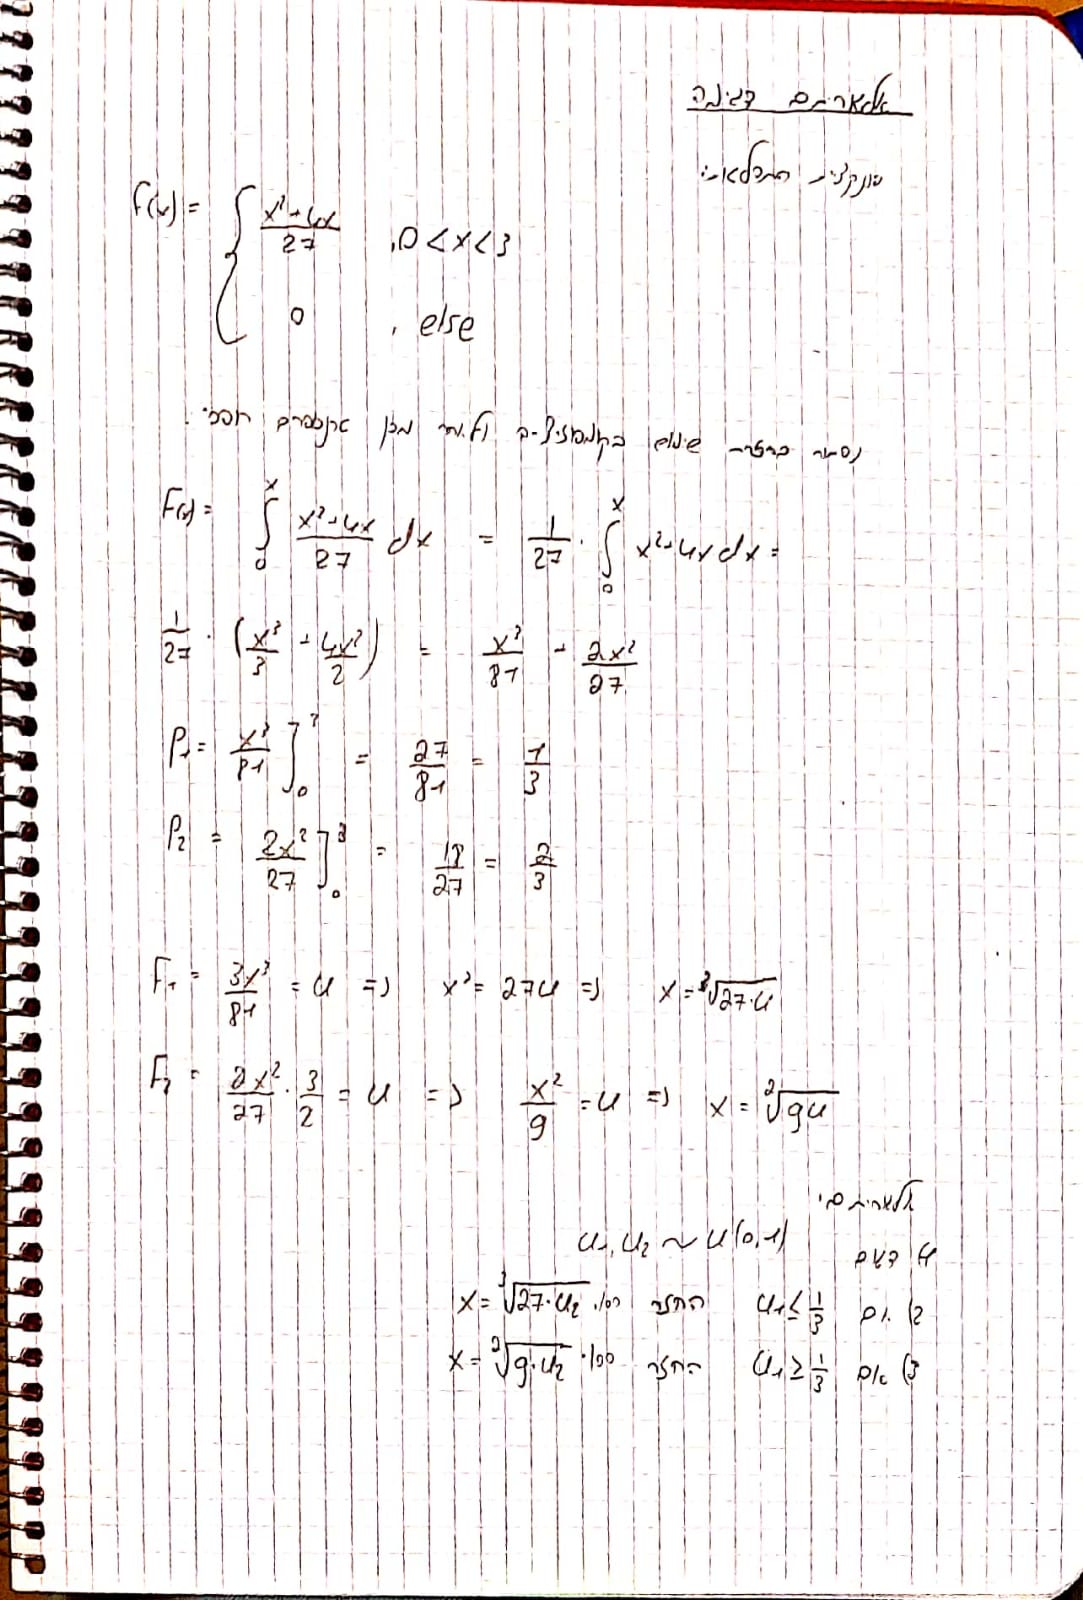 אלגוריתם דגימה
פונקציית התפלגות:
f(x) = { (x² + 4x)/27 , 0 < x < 3
0 , else
נסתר בעזרת שימוש בקומפוזיציה ולאחר מכן טרנספורם הופכי.
F(x) = ∫₀ˣ (x² + 4x)/27 dx = 1/27 · ∫₀ˣ x² + 4x dx =
1/27 · (x³/3 + 4x²/2) = x³/81 + 2x²/27
P₁ = x³/81 ]₀³ = 27/81 = 1/3
P₂ = 2x²/27 ]₀³ = 18/27 = 2/3
F₁ = 3x³/81 = u => x³ = 27u => x = ³√(27·u)
F₂ = 2x²/27 · 3/2 = u => x²/9 = u => x = ²√(9u)
אלגוריתם:
1) דגום u₁, u₂ ~ U(0,1)
2) אם u₁ ≤ 1/3 החזר x = ³√(27·u₂) · 100
3) אם u₁ ≥ 1/3 החזר x = ²√(9·u₂) · 100